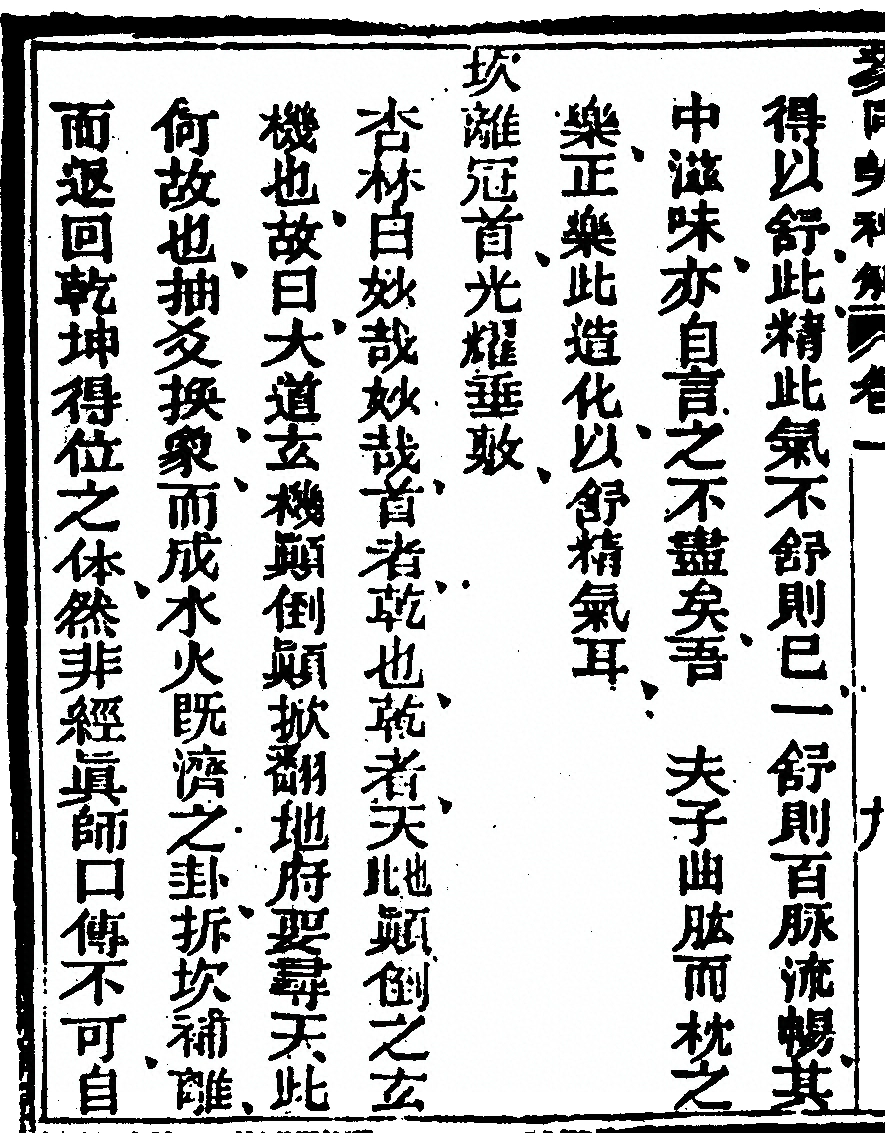 得以舒此精此氣不舒則已一舒則百脉流暢其
中滋味亦自言之不盡矣吾　夫子曲肱而枕之
樂正樂此造化以舒精氣耳
坎離冠首光耀垂敷
杏林曰妙哉妙哉首者乾也乾者天此也顚倒之玄
機也故曰大道玄機顚倒顚掀翻地府要尋天此
何故也抽爻換象而成水火既濟之卦拆坎補離
而返回乾坤得位之体然非經眞師口傳不可自